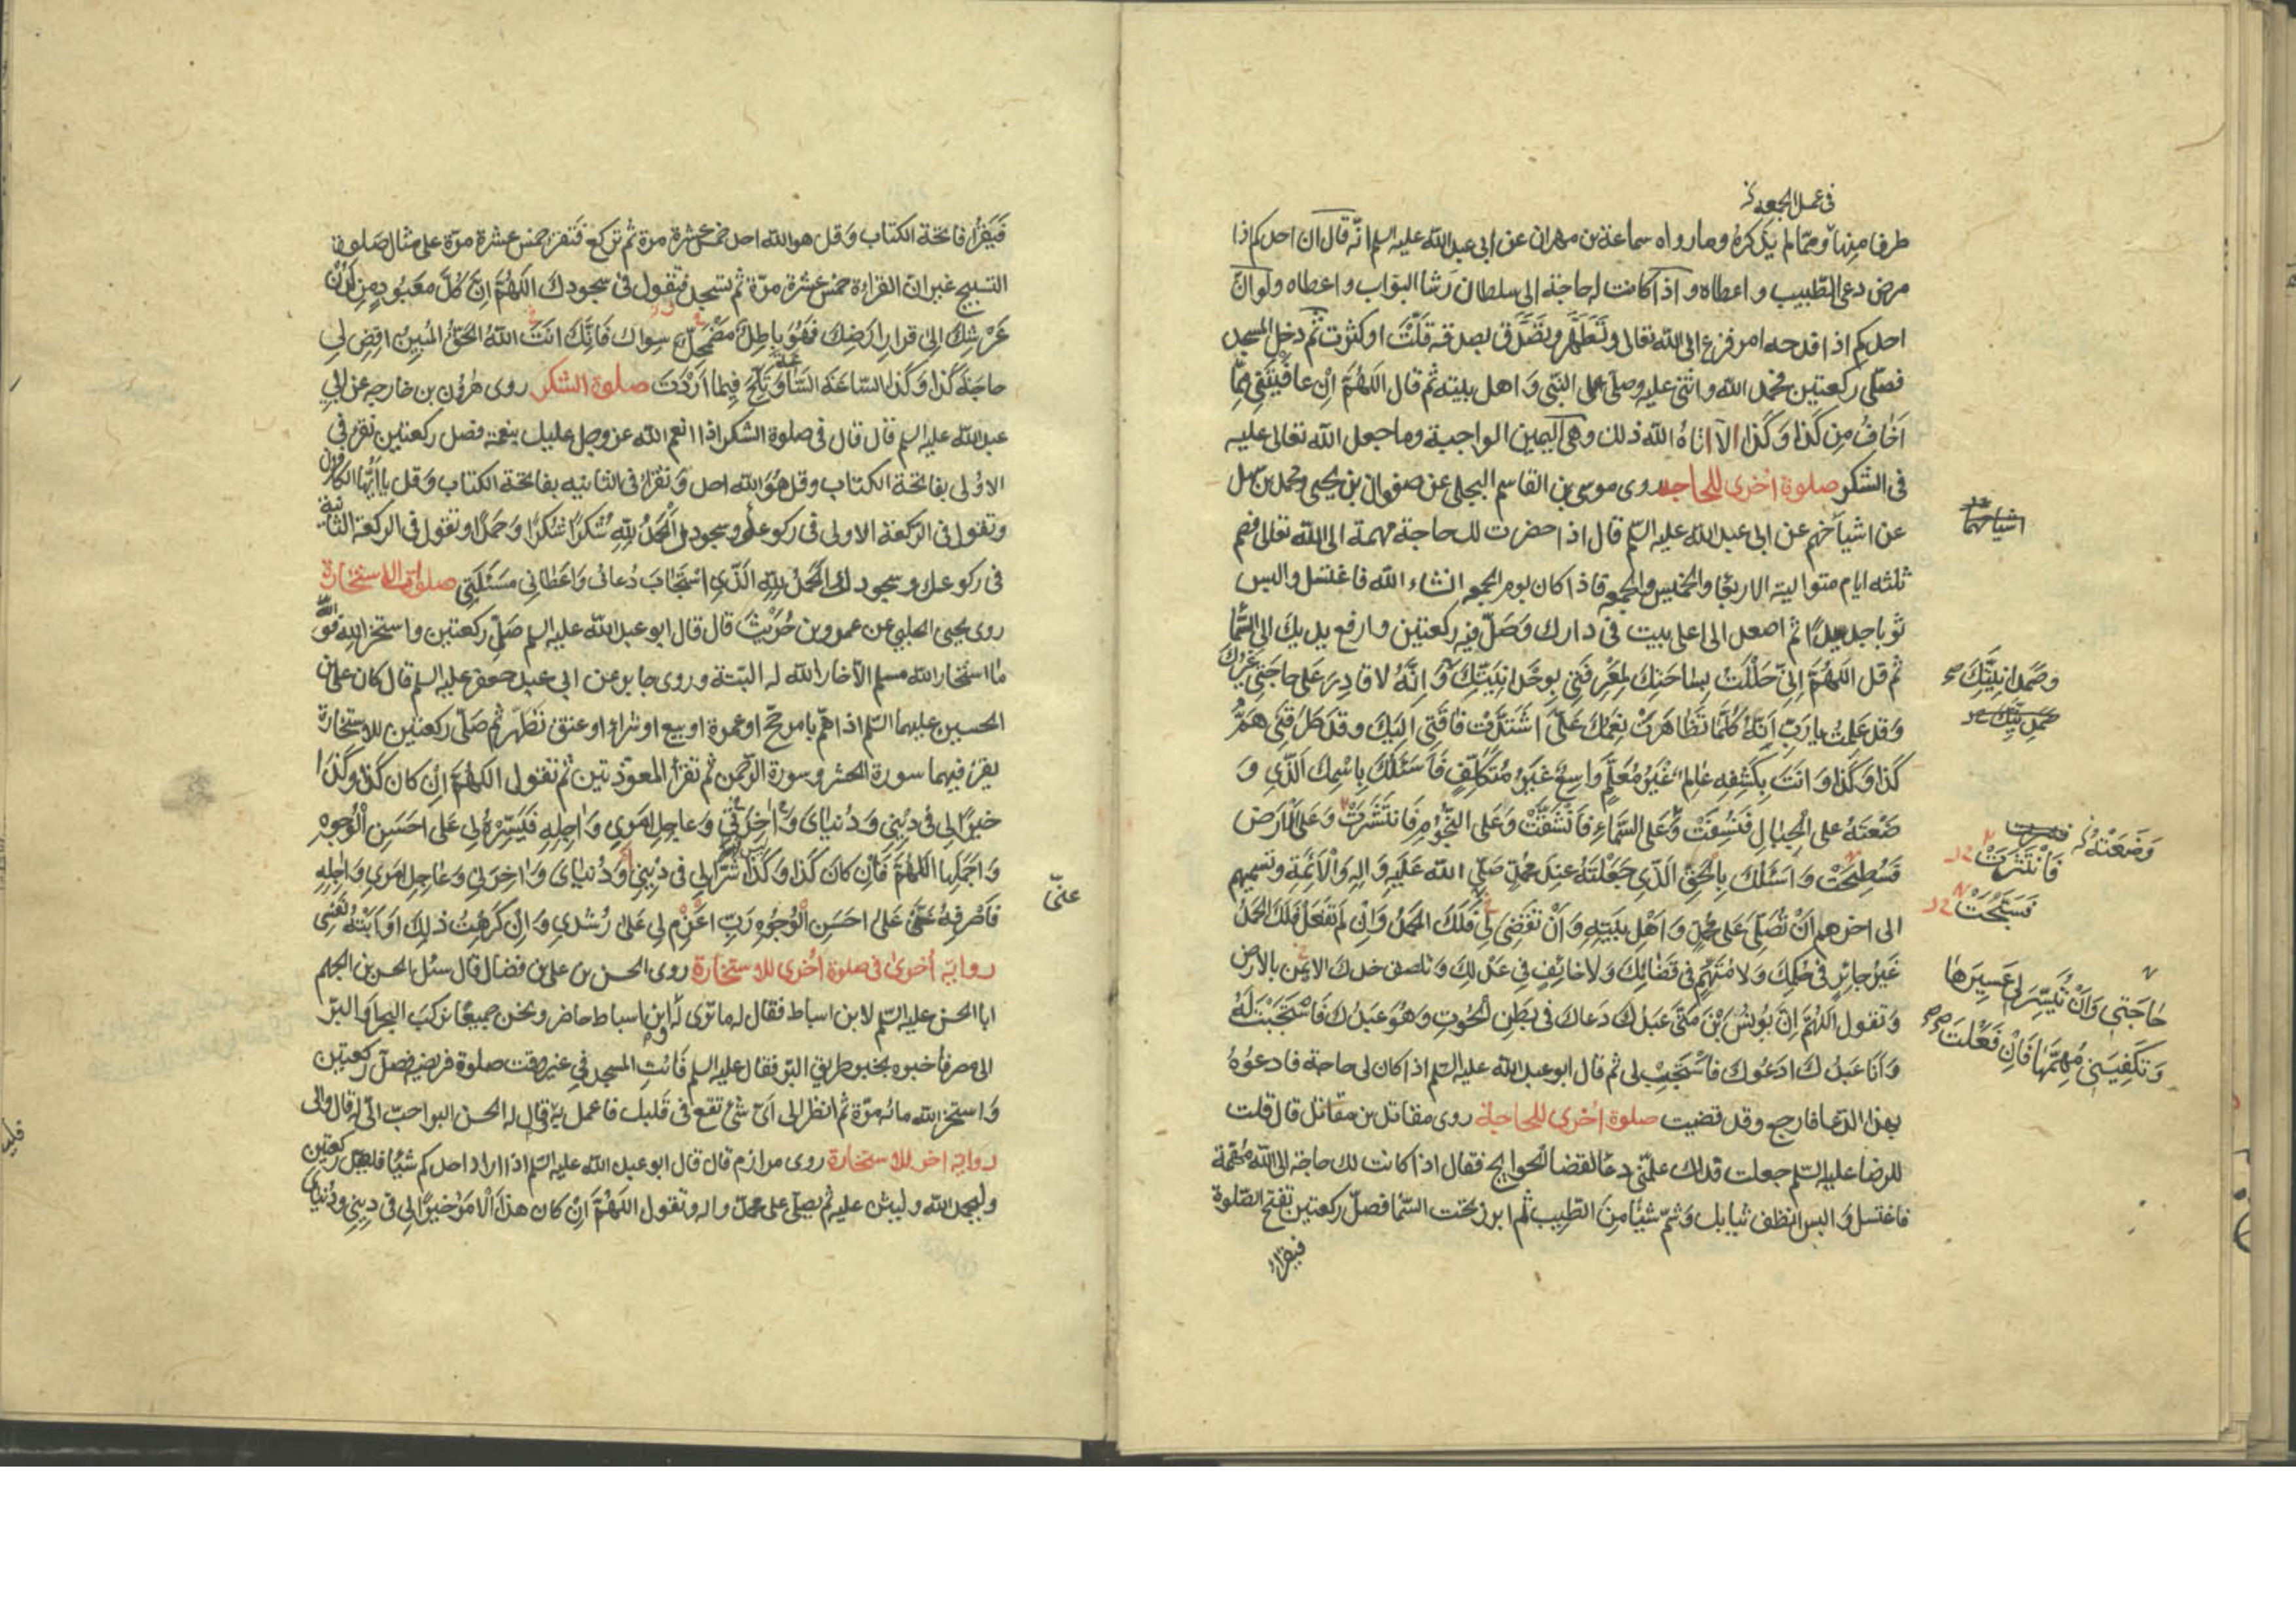 فى عمل الجمعه
طرفا منها ومما لم يذكره وما رواه سماعة بن مهران عن ابى عبد الله عليه السلم انّه قال ان احدكم اذا
مرض دعى الطّبيب و اعطاه و اذا كانت له حاجة الى سلطان رشا البوّاب و اعطاه ولو انّ
احدكم اذا فدحه امر فزع الى الله تعالى وتَطَهَّر وتصَدَّق بصدقة قلّت او كثرت ثم دخل المسجد
فصلّى ركعتين فحمد الله واثنى عليه وصلّى على النبّى وَ اهل بيته ثم قال اللهُمَّ اِنْ عافَيتَنى مِمّا
اَخافُ مِن كَذا وَ كَذا الّا اتاهُ الله ذلك وهى اليمين الواجبة وما جعل الله تعالى عليه
فى الشكر صلوة اخرى للحاجه روى موسى بن القاسم البجلى عن صفوان بن يحيى ومحمد بن سهل
عن اشياخهم عن ابى عبد الله عليه السّلم قال اذا حضرت لك حاجة مهمة الى الله تعالى فصم
ثلثه ايام متواليه الاربعا والخميس والجمعه فاذا كان يوم الجمعه انشاء الله فاغتسل والبس
ثوبا جديدًا ثم اصعد الى اعلى بيت فى دارك وَصَلّ فيه ركعتين وارفع يديك الى السَّما
ثم قل اللهُمَّ اِنّى حَلَلْتُ بِساحَتِكَ لِمَعْرِفَتى بِوَحْدانِيّتِكَ وَ اِنَّهُ لا قادِرَ عَلى حاجَتى غَيْرُكَ
وَقد عَلِمْتُ يا رَبِّ اَنَّهُ كُلَّما تَظاهَرَتْ نِعَمُكَ عَلَىَّ اشْتَدَّتْ فاقَتى اِلَيْكَ وقد طَرَقَنى هَمُّ
كَذا وَكَذا وَ انَتَ بِكَشْفِهِ عالِمٌ غَيْرُ مُعَلَّمٍ واسِعٌ غَيْرُ مُتَكَلِّفٍ فَاَسْئَلُكَ بِاسْمِكَ الَّذى وَ
ضَعْتَهُ على الجِبالِ فَنُسِفَتْ وَعَلى السَّماءِ فَانْشَقَّتْ وَعَلى النّجُومِ فَانْتَشَرَتْ وَعَلى الاَرضِ
فَسُطِحَتْ وَ اَسْئَلُكَ بِالحَقِّ الَّذى جَعَلْتَهُ عِنْدَ محمّدٍ صَلّى الله عَلَيْهِ وَالِهِ وَالْاَئِمَّةِ وتسمّيهم
الى اخرهم اَنْ تُصَلّىَ عَلى محمّدٍ وَ اَهْلِ بَيْتِهِ وَ اَنْ تقَضىَ لى فَلَكَ الحَمدُ وَاِنْ لَم تَفْعَلْ فَلَكَ الحَمدُ
غَيْرُ جائِرٍ فى حُكْمِكَ وَلا مُتّهَمٍ فى قَضائِكَ وَلا خائِفٍ فى عَدْلِكَ وتلصق خدك الايمن بالارض
وَتقول اَللّهُمَّ اِنَّ يُونُسَ بْنَ مَتّى عَبْدُكَ دَعاكَ فى بَطْنِ الحُوتِ وَهُوَ عَبْدُكَ فَاسْتَجَبْتَ لَهُ
وَ اَنَا عَبْدُكَ ادَعُوكَ فاسْتَجِبْ لى ثم قال ابو عبد الله عليه السّلم اذا كان لى حاجة فادعُوهُ
بهذا الدّعا فارجع وقد قضيت صلوة اُخرى للحاجة روى مقاتل بن مقاتل قال قلت
للرضا عليه السّلم جعلت فداك علّمنى دعا لقضا الحوايج فقال اذا كانت لك حاجة الى الله مهّمة
فاغتسل وَ البس انظف ثيابك وَشمّ شيئا مِنَ الطّيب ثم ابرز تحت السّما فصلّ ركعتين تفتح الصّلوة
فيقرأ
اشياخهما
وَحْدانِيَّتِكَ
وَضَعْتَهُ
فَانْتَثَرَتْ
فَسُطِحَتْ
حاجَتى وَاَنْ تُيَسِّرَ لى عَسيرَها
وَتَكْفِيَنى مُهِمَّها فَاِنْ فَعَلْتَ
فَيَقرَأ فاتحة الكتاب وَقل هو الله احد خمس عشرة مرة ثم تركع فتقرا خمس عشرة مرّة على مثال صَلوة
التسبيح غير انّ القراءة خمس عشرة مرّة ثم تسجد فتقول فى سجودك اللهُمَّ اِنَّ كُلَّ مَعْبُودٍ مِن لَدُنْ
عَرْشِكَ اِلى قرارِ ارَضِكَ فَهُوَ باطِلٌ مُضْمَحِلٌّ سِواك فَاِنَّكَ انْتَ اللهُ الحَقُّ المُبينُ اقضِ لى
حاجَةَ كَذا وَكَذا السّاعَةَ السّاعَةَ وَتَلِحّ فيما اَرَدْتَ صلوة الشكر روى هرون بن خارجه عن ابى
عبد الله عليه السلم قال قال فى صلوة الشكر اذا انعم الله عز وجل عليك بنعمة فصل ركعتين تقرء فى
الاوُلى بفاتحة الكتاب وقل هُوَ الله احد وَ تقرَأ فى الثانيه بفاتحة الكتاب وَقل يا اَيُّها الكافرون
وتقول فى الرّكعة الاولى فى ركوعك وسجودك اَلْحَمدُ لِلّهِ شُكرًا شُكرًا وَحَمْدًا وتقول فى الركعة الثانية
فى ركوعك وسجودك الحَمدُ لِلّهِ الَّذى اسْتَجابَ دُعائى وَاعَطانى مَسْئَلَتى صلوة الاستخارة
روى يحيى الحلبى عن عمرو بن حُرَيْث قال قال ابو عبد الله عليه السلم صَلِّ ركعتين واستخر الله فو الله
ما استخار الله مسلم الّا خار الله له البتّة وروى جابر عن ابى جعفر عليه السلم قال كان على بن
الحسين عليهما السّلم اذا همّ بامر حجّ او عمرة او بيع او شراء او عتق تطَهّر ثم صَلّى ركعتين للاستخارة
يقرء فيهما سورة الحشر وسورة الرّحمن ثم تقرأ المعوّذتين ثم تقول اللهُمَّ اِنْ كان كَذا وَكَذا
خيرًا لى فى دينى وَ دُنياىَ وَ اخِرَتى وَعاجِلِ امَرى وَ اجِلِهِ فَيَسِّرْهُ لى عَلى احَسَنِ الْوُجوهِ
وَ اجَمَلِها اللهُمَّ فَاِنْ كانَ كَذا وَ كَذا شَرًّا لى فى دينى اَوْ دُنياىَ وَ اخِرَتى وَ عاجِلِ امَرى وَ اجِلِهِ
فَاصْرِفْهُ عَنّى عَلى احَسَنِ الْوُجُوهِ رَبِّ اعَزِمْ لى عَلى رُشْدى وَ اِنْ كَرِهْتُ ذلِكَ اَوْ اَبَتْهُ نَفْسى
رواية اُخرى فى صلوة اُخرى للاستخارة روى الحسن بن على بن فضال قال سئل الحسن بن الجهم
ابا الحسن عليه السّلم لابن اسباط فقال له ما ترى له وابن اسباط حاضر ونحن جميعًا نركب البحر اَو البرّ
الى مصر فاخبره بخير طريق البرّ فقال عليه السلم فَائتِ المسجد فى غير وقت صلوة فريضه فصلّ ركعتين
وَ استخر الله مائه مرّة ثم انظر الى اىّ شئ تقع فى قلبك فاعمل به قال له الحسن البر احبّ الىّ له قال والى
رواية اخر للاستخارة روى مرازم قال قال ابو عبد الله عليه السّلم اذا اراد احدكم شيئا فليصل ركعتين
وليحمد الله وليثن عليه ثم يصلّى على محمد واله وتقول اللهُمَّ اَنْ كان هذا الْاَمَرُ خيرًا لى فى دينى ودُنياى
عنّى